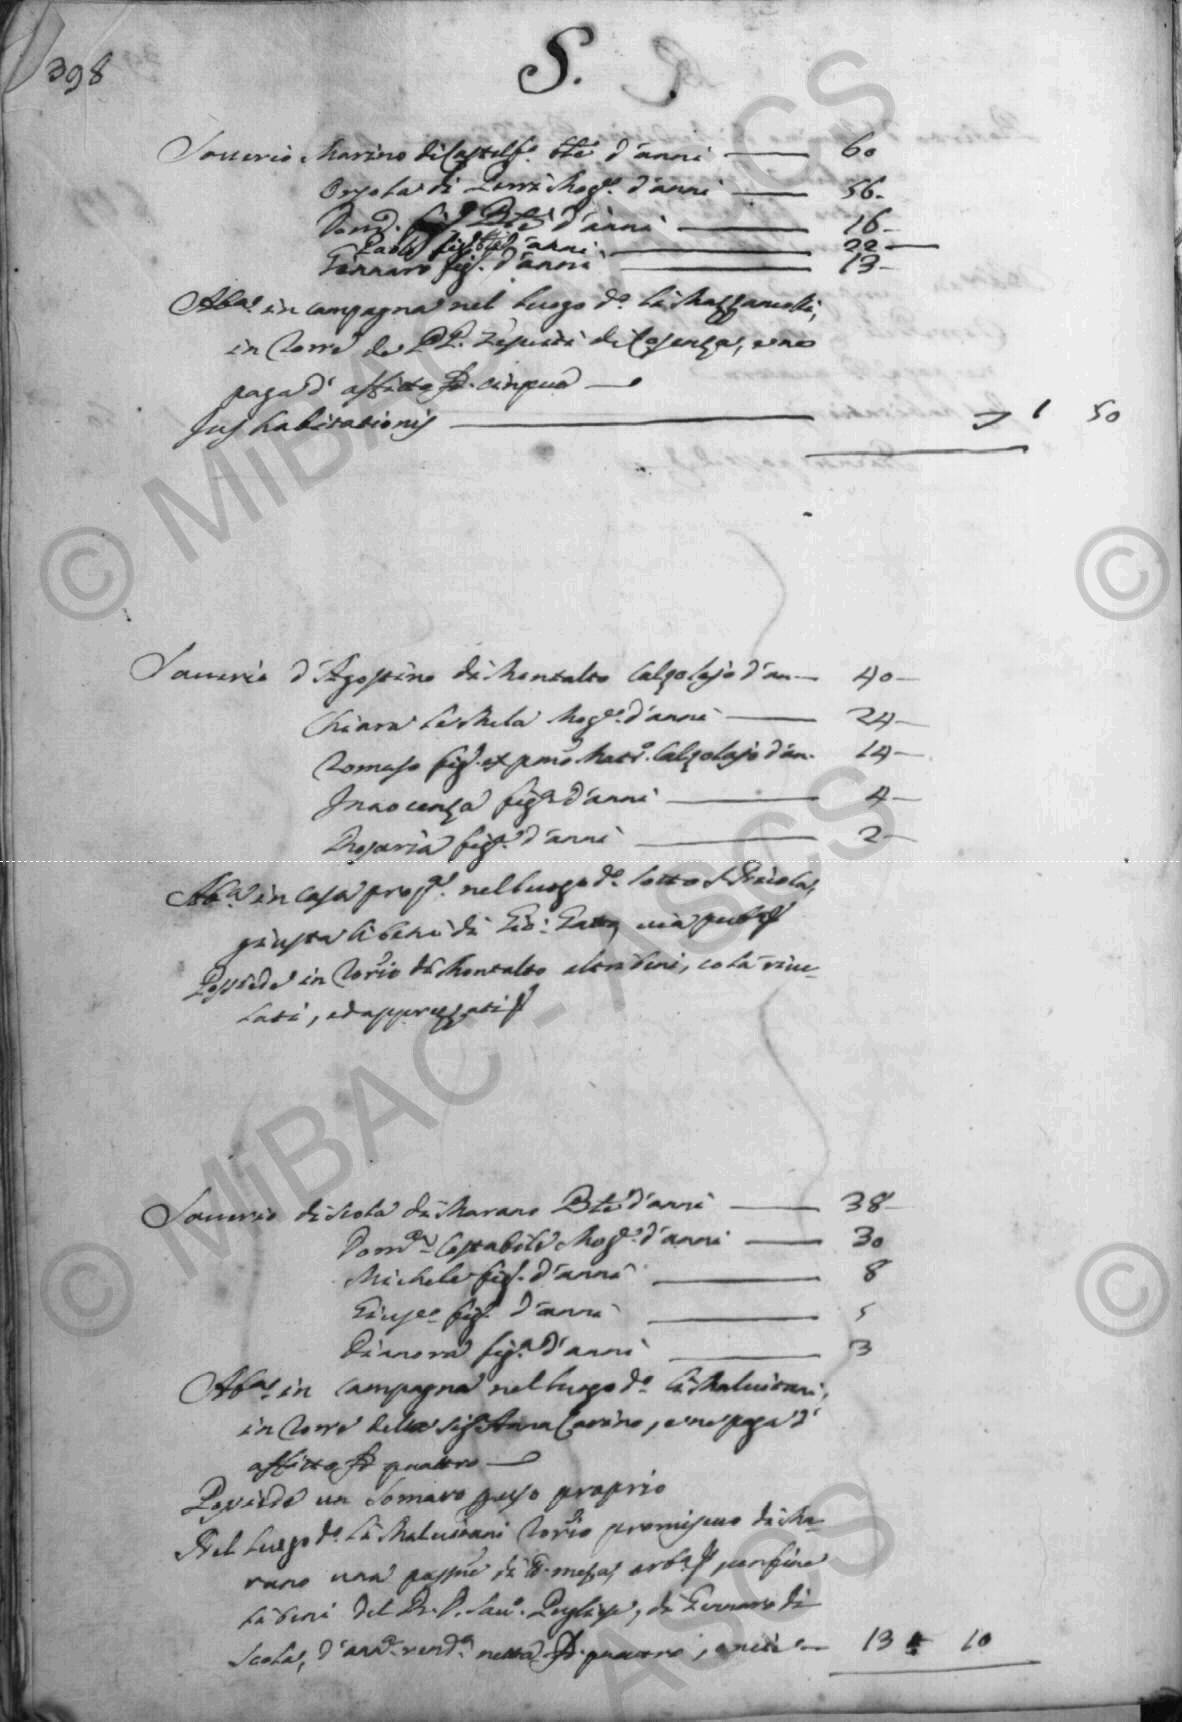 398
S.
Saverio Marino di Castelf.º Bte d'anni 60
Orsola di Perri Mog.e d'anni 56
Dom.º fig.º Bte d'anni 16
Paolo fig.º Bte d'anni 22
Gennaro fig.º d'anni 13
Ab.no in campagna nel luogo d.º li Mazzancolli,
in Torre de PP. Gesuiti di Cosenza, e ne
paga d'affitto D. cinque
Jus habitationis 1 50
Saverio d'Agostino di Montalto Calzolajo d'an. 40
Chiara la Mela Mog.e d'anni 24
Tomaso fig.º ex pmo Matr.º Calzolajo d'an. 14
Innocenza fig.a d'anni 4
Rosaria fig.a d'anni 2
Ab.a in casa prop.a nel luogo d.º sotto S. Nicola,
giusta li beni di Gio: Gatto, via pub.
Possiede in Torrio di Montalto altri beni, colà rive-
lati, ed apprezzati
Saverio di Scola di Marano Bte d'anni 38
Dom.ca Costabile Mog.e d'anni 30
Michele fig.º d'anni 8
Giusp.e fig.º d'anni 5
Dianora fig.a d'anni 3
Ab.no in campagna nel luogo d.º li Malvitani,
in Torre della Sig.a Anna Cavino, e ne paga d'
affitto D. quattro
Possiede un Somaro per uso proprio
Nel luogo d.º li Malvitani Torrio promiscuo di Ma-
rano una possne di mezza, confine
li beni del R. D. Sav.º Pugliese, di Gennaro di
Scola, d'ann.a rend.a netta D. quattro, 13 10
© MiBAC - ASCS
© MiBAC - ASCS
©
©
ASCS